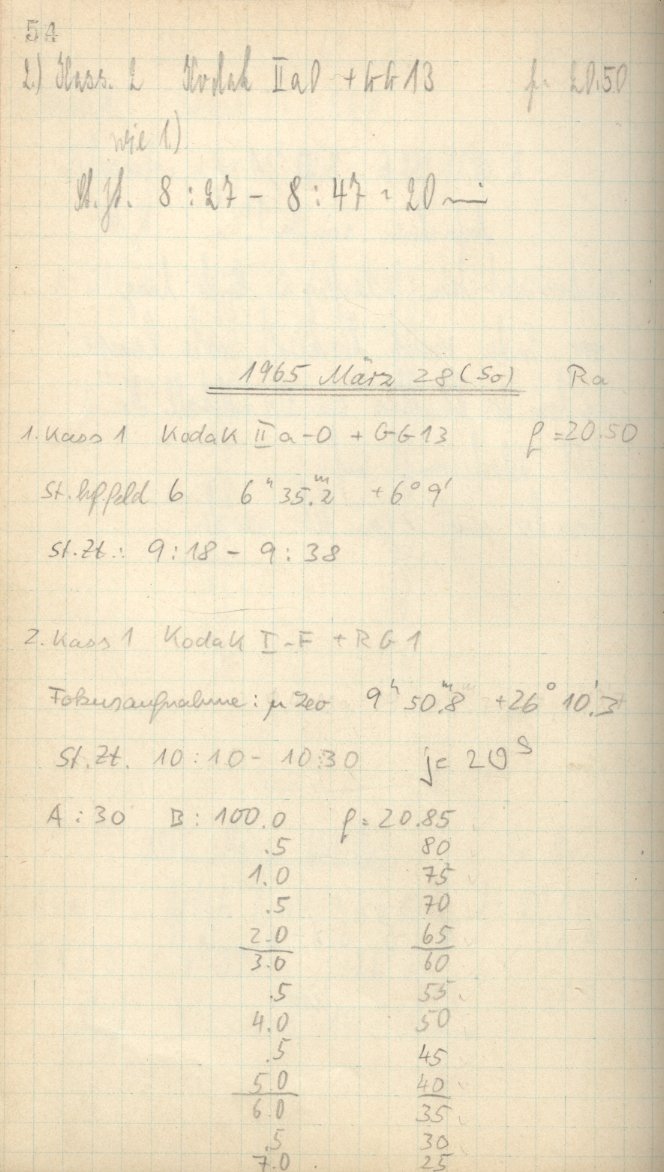 54
2) Kass. 2 Kodak IIaO + GG13 f= 20.50
wie 1)
St.Zt. 8:27 - 8:47 = 20 min
1965 März 28 (So) Ra
1. Kass 1 Kodak IIa-O + GG13 f=20.50
St. feld 6 6ʰ 35.ᵐ2 +6°9'
St.Zt.: 9:18 - 9:38
2. Kass 1 Kodak I-F + RG1
Fokusaufnahme: μ Leo 9ʰ 50.ᵐ8 +26° 10.'3
St.Zt. 10:10 - 10:30 j= 20ˢ
A: 30 B: 100.0 f= 20.85
.5 80
1.0 75
.5 70
2.0 65
3.0 60
.5 55
4.0 50
.5 45
5.0 40
6.0 35
.5 30
7.0 25